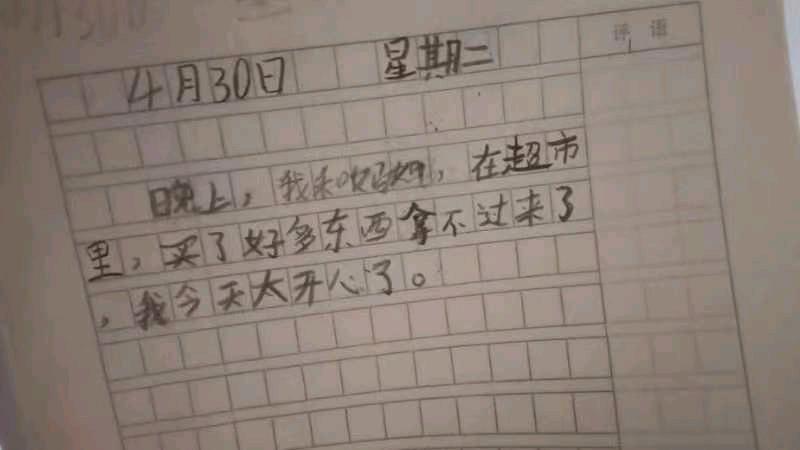 评语
4月30日 星期二
晚上，我和妈妈，在超市
里，买了好多东西拿不过来了
，我今天太开心了。